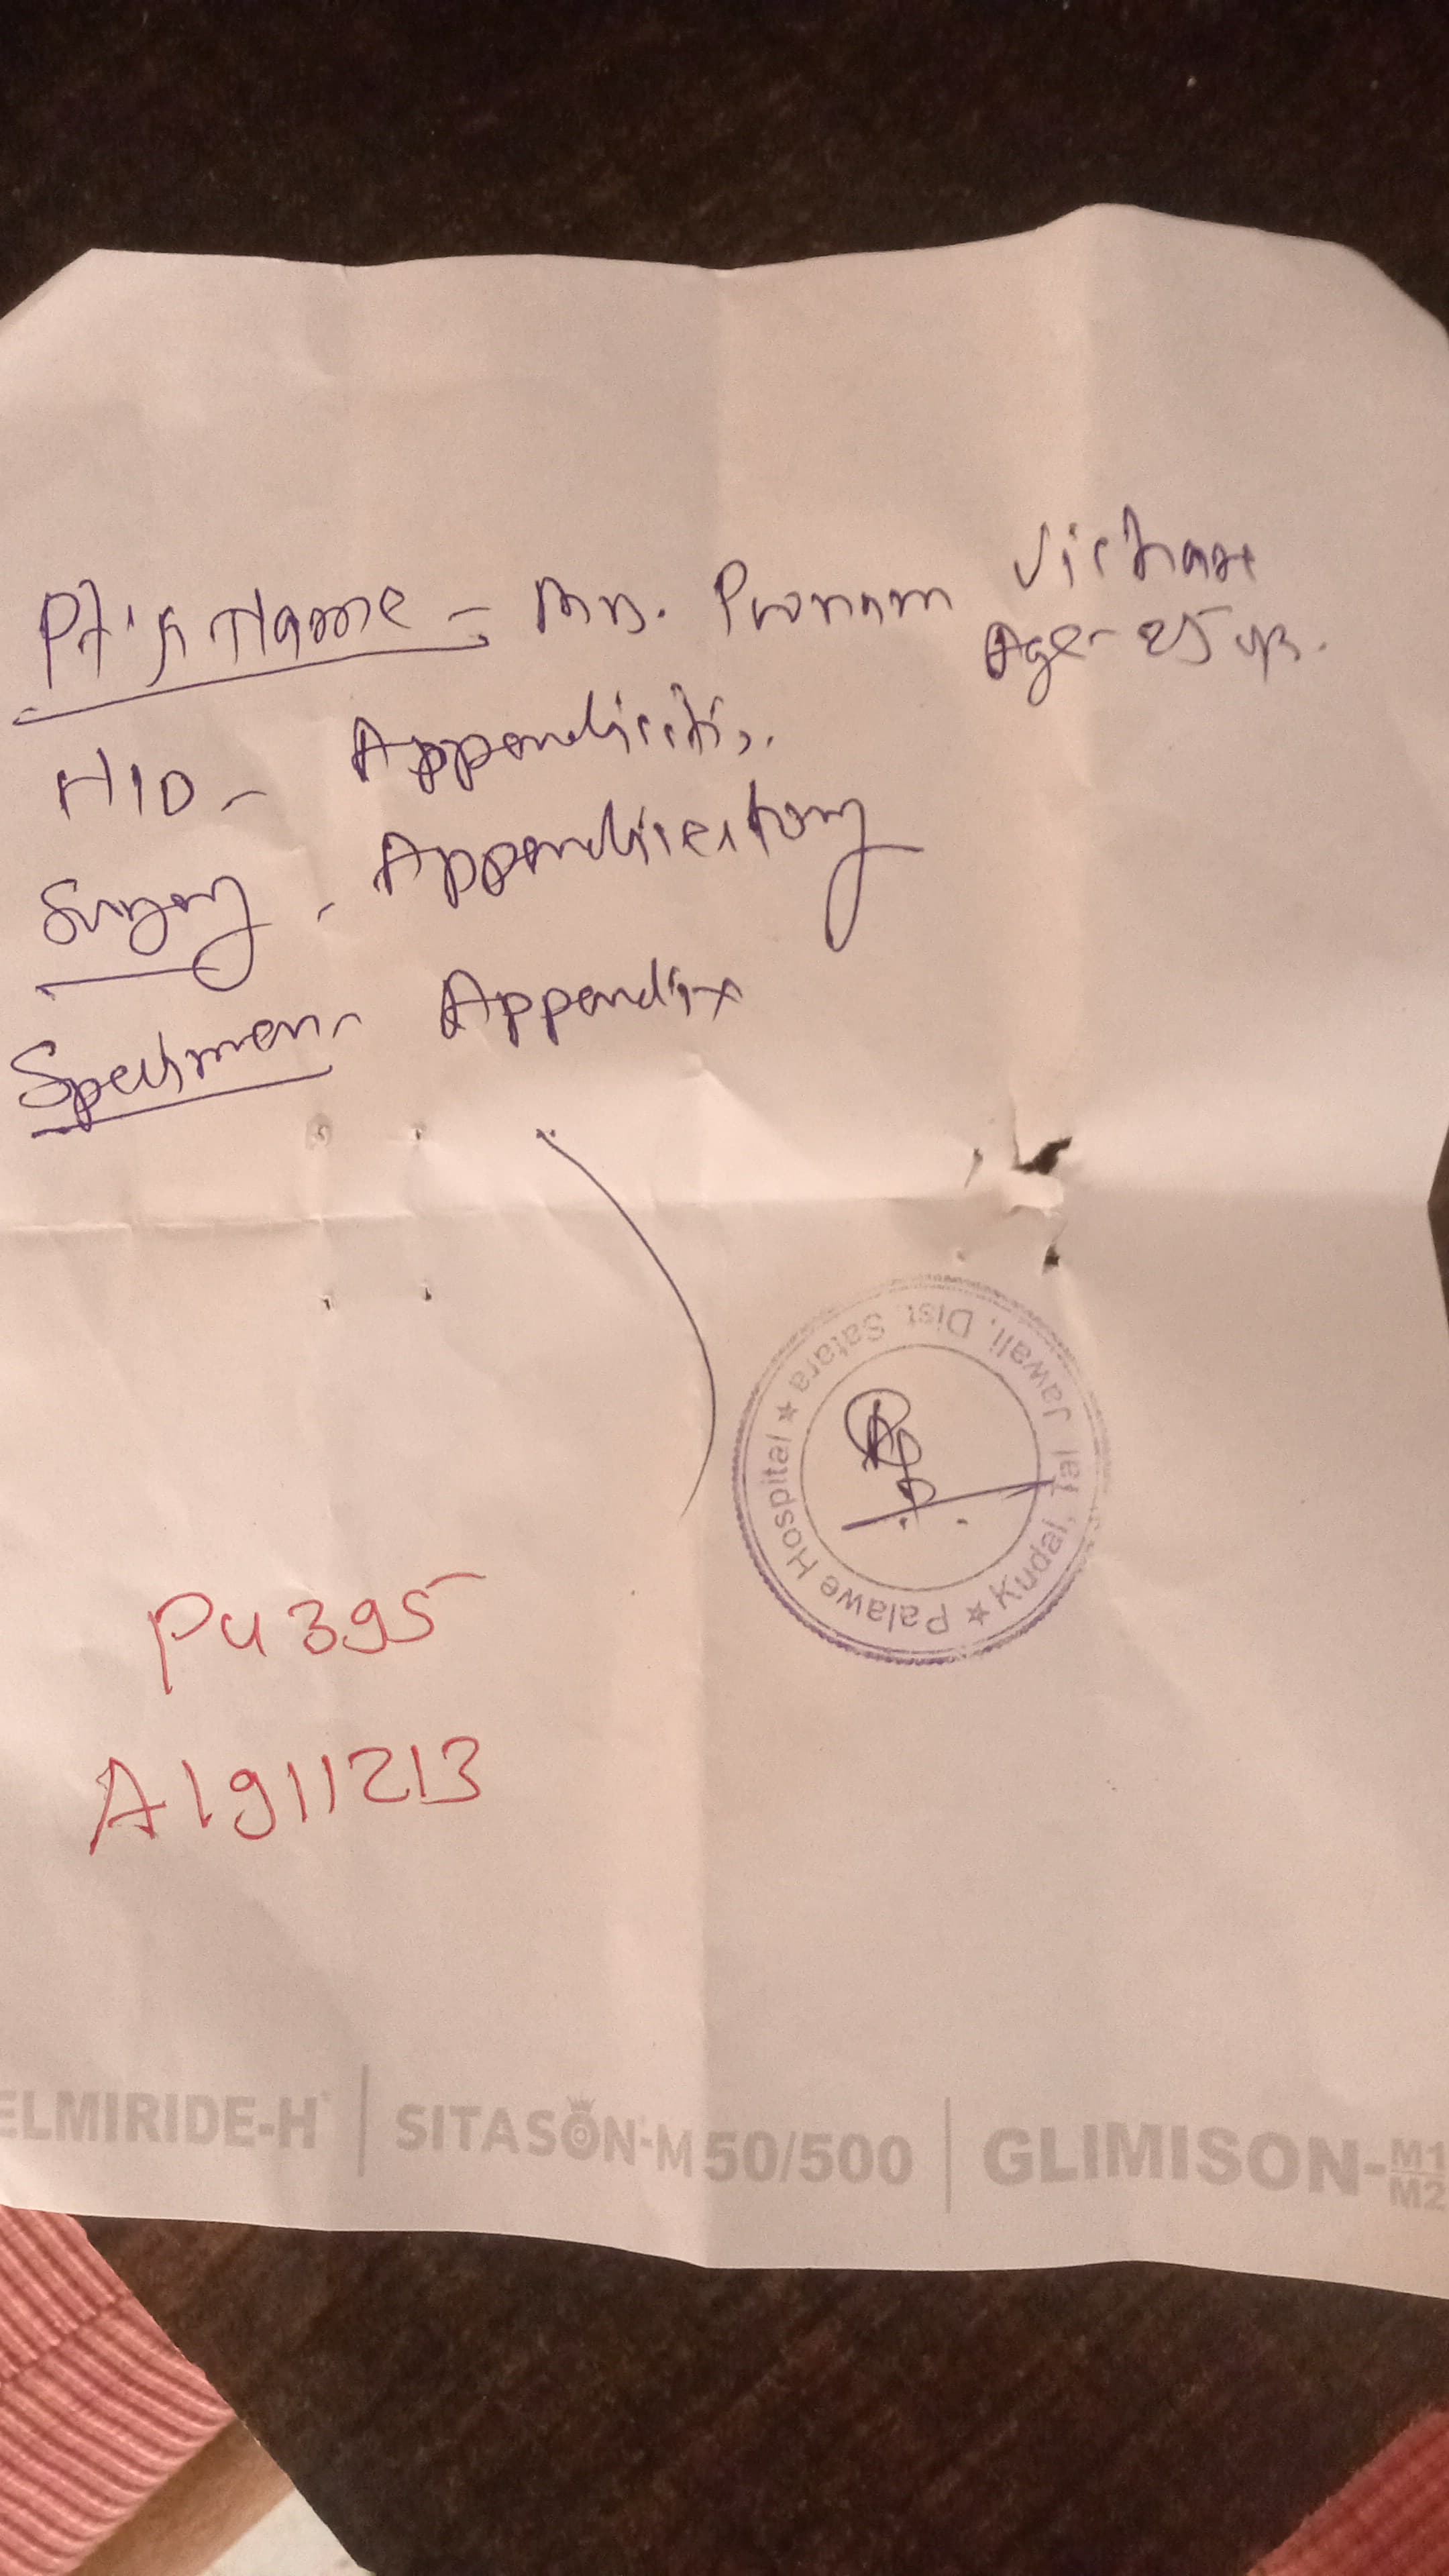 Pt's Name = Mrs. Poonam
Age - 25 yrs.
H/O - Appendicitis.
Surgery - Appendicectomy
Specimen - Appendix
Palawe Hospital ★ Kudal, Tal Jawali, Dist. Satara ★
PU395
A1911213
ELMIRIDE-H | SITASON-M 50/500 | GLIMISON-M1
M2